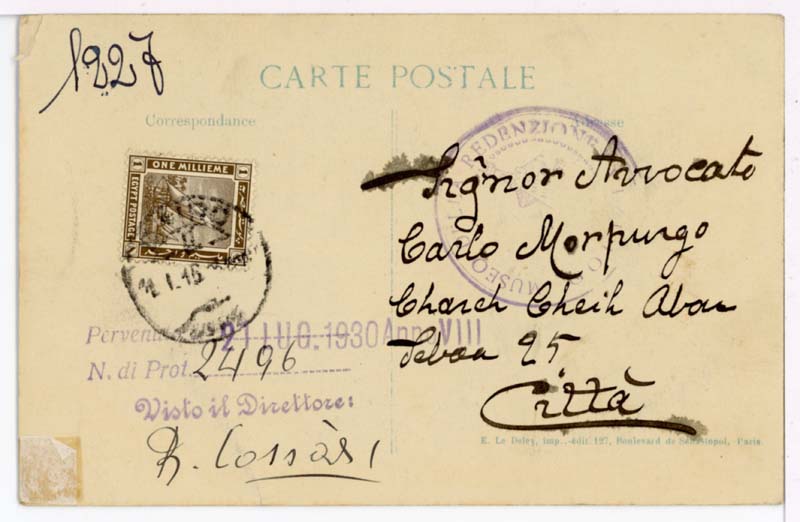 1227
CARTE POSTALE
Correspondance
Adresse
1 ONE MILLIEME 1
EGYPT POSTAGE
REDENZIONE
MUSEO
11.I.16
Signor Avvocato
Carlo Morpurgo
Chareh Cheih Abou
Sebaa 25
Città
Pervenu 21 LUG. 1930 Anno VIII
N. di Prot. 2496
Visto il Direttore:
E. Le Deley, imp.-édit. 127, Boulevard de Sébastopol, Paris